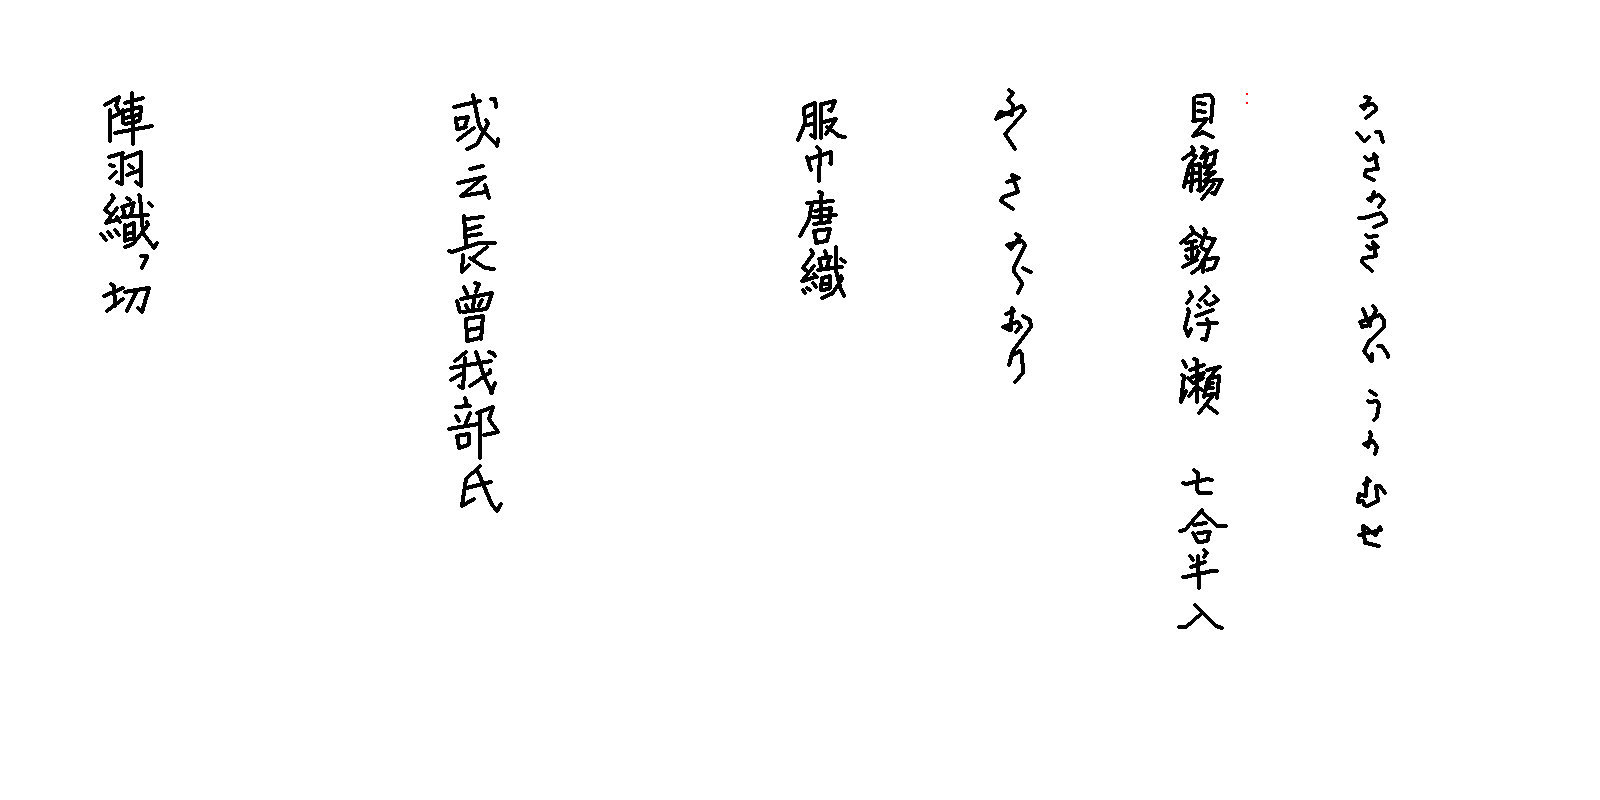 かいさかつき めい うかむせ
貝觴 銘 浮瀬 七合半入
ふくさ からおり
服巾唐織
或云長曾我部氏
陣羽織ノ切